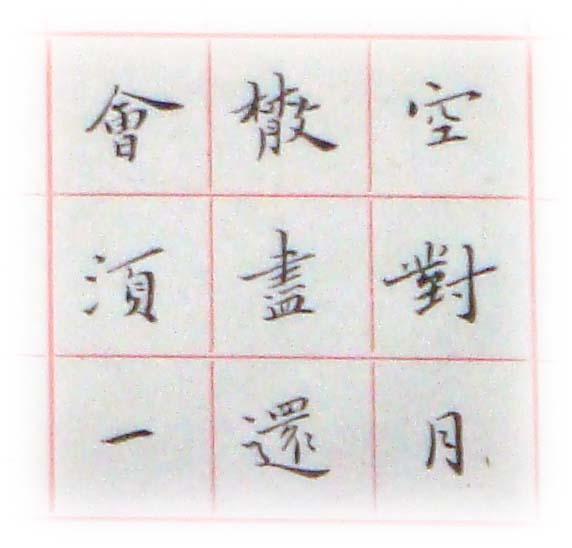 空對月
散盡還
會須一